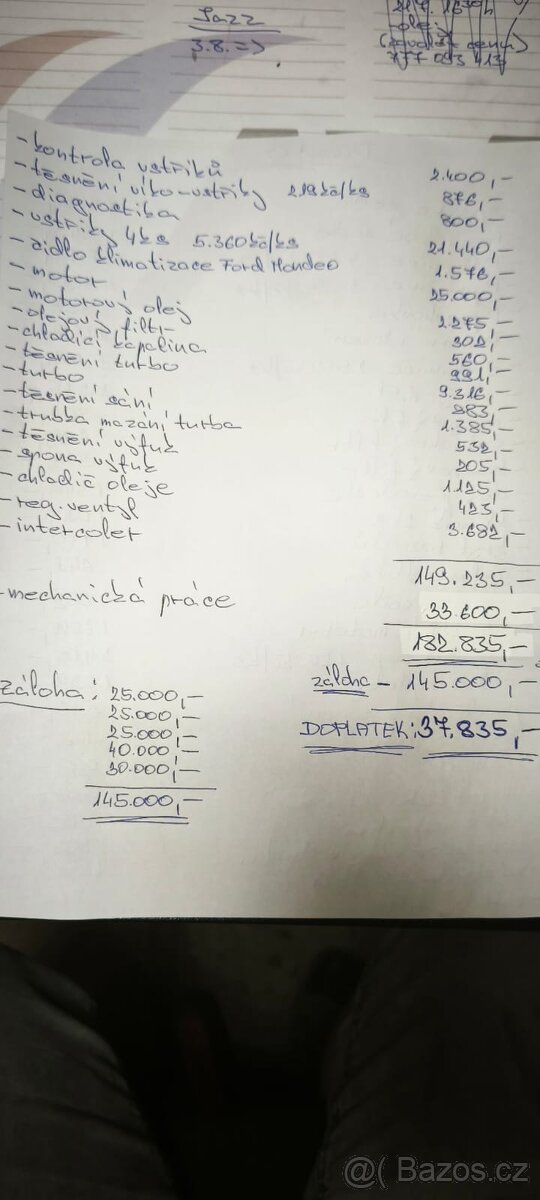 Jazz
3.8. =>
21.4. 16³⁰h
777 093 413
- kontrola vstřiků 2.400,-
- těsnění víko-vstřiky 219kč/ks 876,-
- diagnostika 800,-
- vstřiky 4ks 5.360kč/ks 21.440,-
- čidlo klimatizace Ford Mondeo 1.576,-
- motor
- motorový olej 2.275,-
- olejový filtr 302,-
- chladící kapalina 560,-
- těsnění turbo 991,-
- turbo 9.316,-
- těsnění sání 983,-
- trubka mazání turba 1.385,-
- těsnění výfuk 532,-
- spona výfuk 205,-
- chladič oleje 1.125,-
- reg. ventyl 423,-
- intercoler 3.682,-
149.235,-
- mechanická práce 33.600,-
182.835,-
záloha - 145.000,-
DOPLATEK: 37.835,-
záloha: 25.000,-
25.000,-
25.000,-
40.000,-
30.000,-
145.000,-
@( Bazos.cz